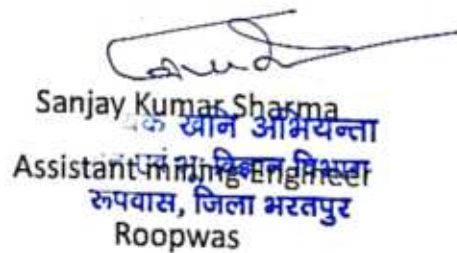 Sanjay Kumar Sharma
खनि अभियन्ता
Assistant mining Engineer
एवं भू विज्ञान विभाग
रूपवास, जिला भरतपुर
Roopwas